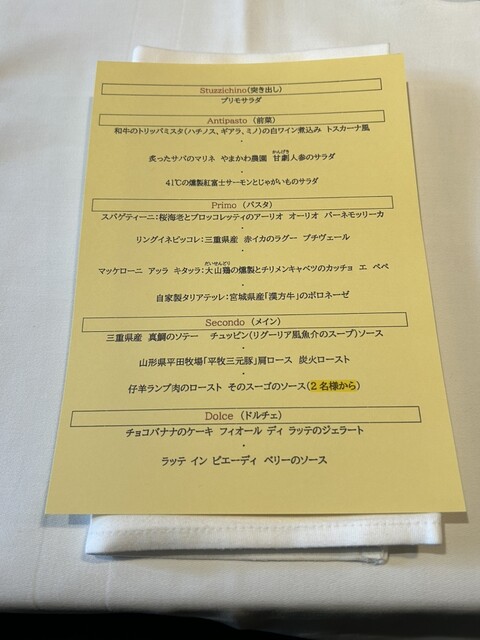 Stuzzichino(突き出し)
プリモサラダ
Antipasto (前菜)
和牛のトリッパミスタ(ハチノス、ギアラ、ミノ)の白ワイン煮込み トスカーナ風
・
炙ったサバのマリネ やまかわ農園 甘劇人参のサラダ
かんげき
・
41℃の燻製紅富士サーモンとじゃがいものサラダ
Primo (パスタ)
スパゲティーニ:桜海老とブロッコレッティのアーリオ オーリオ パーネモッリーカ
・
リングイネピッコレ:三重県産 赤イカのラグー プチヴェール
・
マッケローニ アッラ キタッラ:大山鶏の燻製とチリメンキャベツのカッチョ エ ペペ
だいせんどり
・
自家製タリアテッレ:宮城県産「漢方牛」のボロネーゼ
Secondo (メイン)
三重県産 真鯛のソテー チュッピン(リグーリア風魚介のスープ)ソース
・
山形県平田牧場「平牧三元豚」肩ロース 炭火ロースト
・
仔羊ランプ肉のロースト そのスーゴのソース(2名様から)
Dolce (ドルチェ)
チョコバナナのケーキ フィオール ディ ラッテのジェラート
・
ラッテ イン ピエーディ ベリーのソース